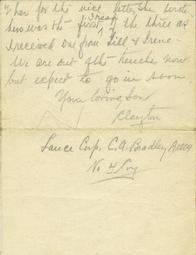 her for the nice letter
was the first of the three as
I received one from Lill & Irene.
We are out of the trenches now
but expect to go in soon
Your loving son
Clayton
Lance Corp. C.A. Bradley
No 4 Coy